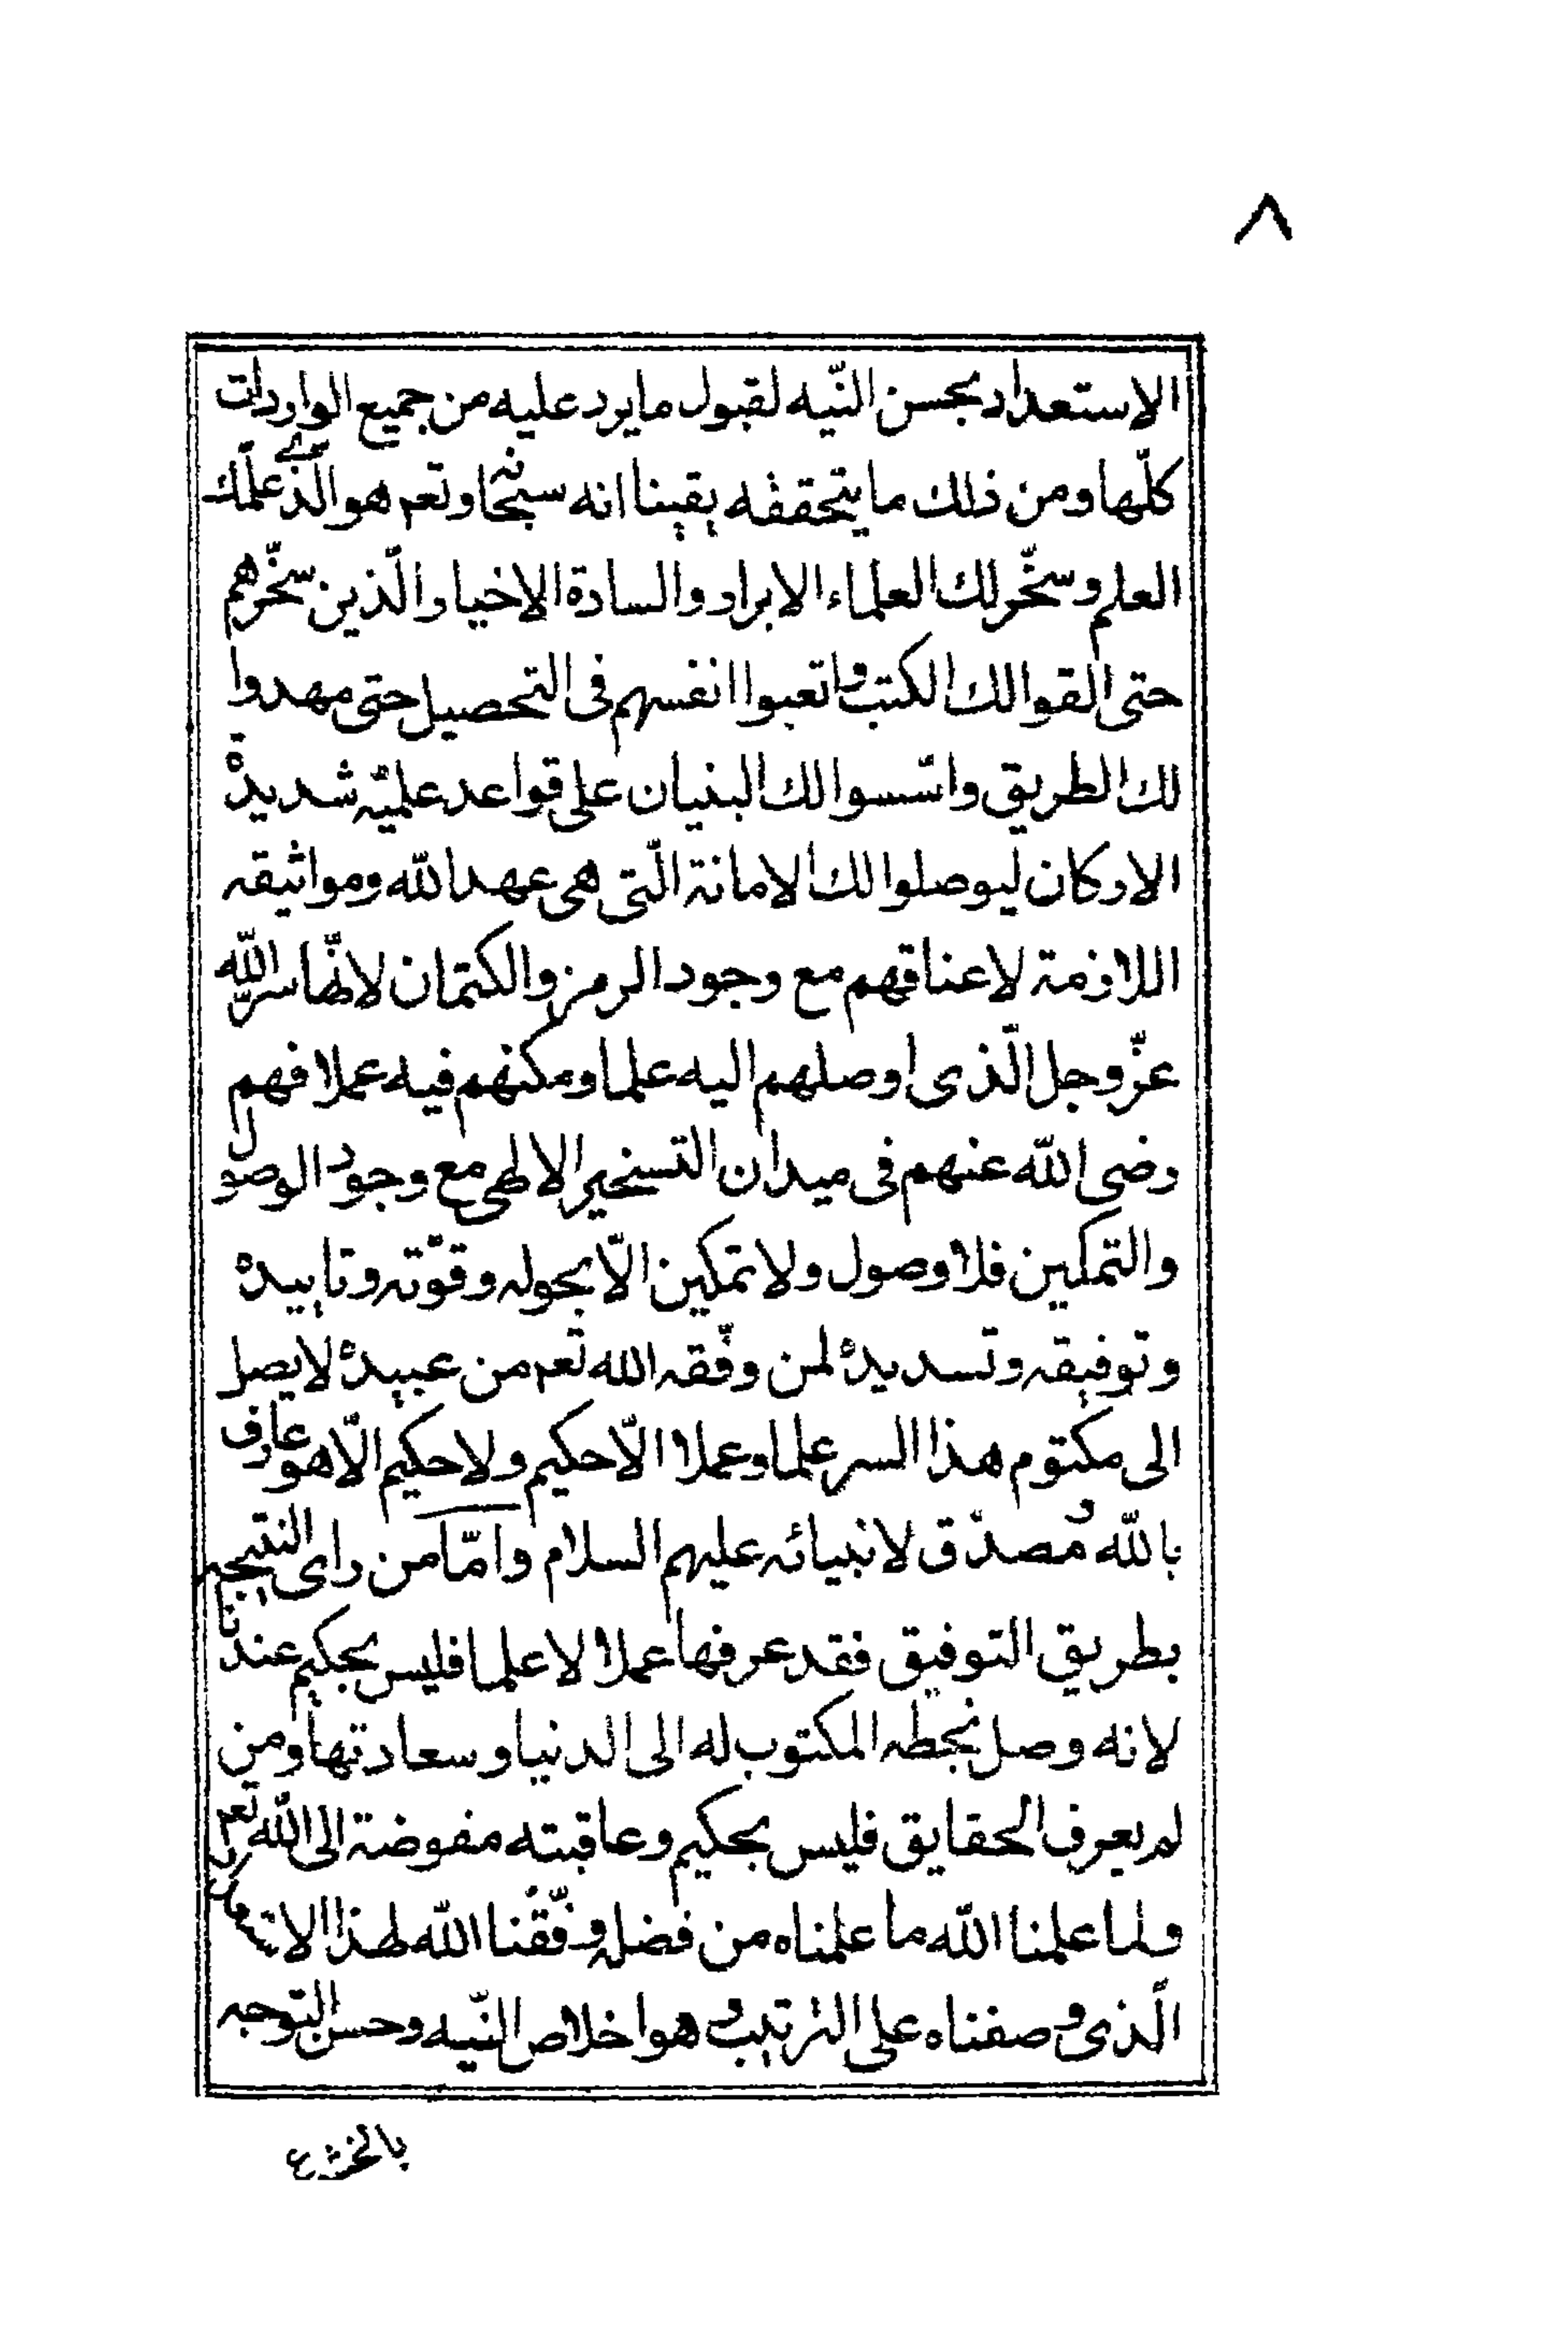 ٨
الاستعداد بحسن النّيه لقبول ما يرد عليه من جميع الواردات
كلّها ومن ذلك ما يتحققه يقينا انه سبحانه وتعم هو الّذى علّمك
العلم وسخّر لك العلماء الابرار والسادة الاخيار الّذين سخّرهم
حتى القوا لك الكتب واتعبوا انفسهم فى التحصيل حتى مهدوا
لك الطريق واسّسوا لك البنيان على قواعد علميّه شديدة
الاركان ليوصلوا لك الامانة الّتى هى عهد الله ومواثيقه
اللازمة لاعناقهم مع وجود الرمز والكتمان لانّها سرّ الله
عزّ وجل الّذى اوصلهم اليه علما ومكنهم فيه عملا فهم
رضى الله عنهم فى ميدان التسخير الالهى مع وجود الوصول
والتمكين فلا وصول ولا تمكين الّا بحوله وقوّته وتاييده
وتوفيقه وتسديده لمن وفّقه الله تعم من عبيده لا يصل
الى مكتوم هذا السر علما وعملا الّا حكيم ولا حكيم الّا هو عارف
بالله ومصدّق لانبيائه عليهم السلام وامّا من راى النتيجه
بطريق التوفيق فقد عرفها عملا لا علما فليس بحكيم عندنا
لانه وصل بحظه المكتوب له الى الدنيا وسعادتها ومن
لم يعرف الحقايق فليس بحكيم وعاقبته مفوضة الى الله تعم
ولما علمنا الله ما علمناه من فضله ووفّقنا الله لهذا
الّذى وصفناه على الترتيب وهو اخلاص النّيه وحسن التوجه
بالخشوع